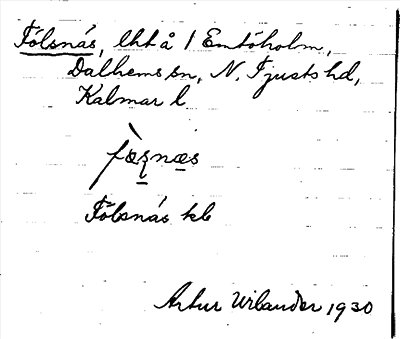 Fölsnäs, lht å / Emtöholm,
Dalhems sn, N. Tjusts hd,
Kalmar l
Fölsnäs kb
Artur Wilander 1930